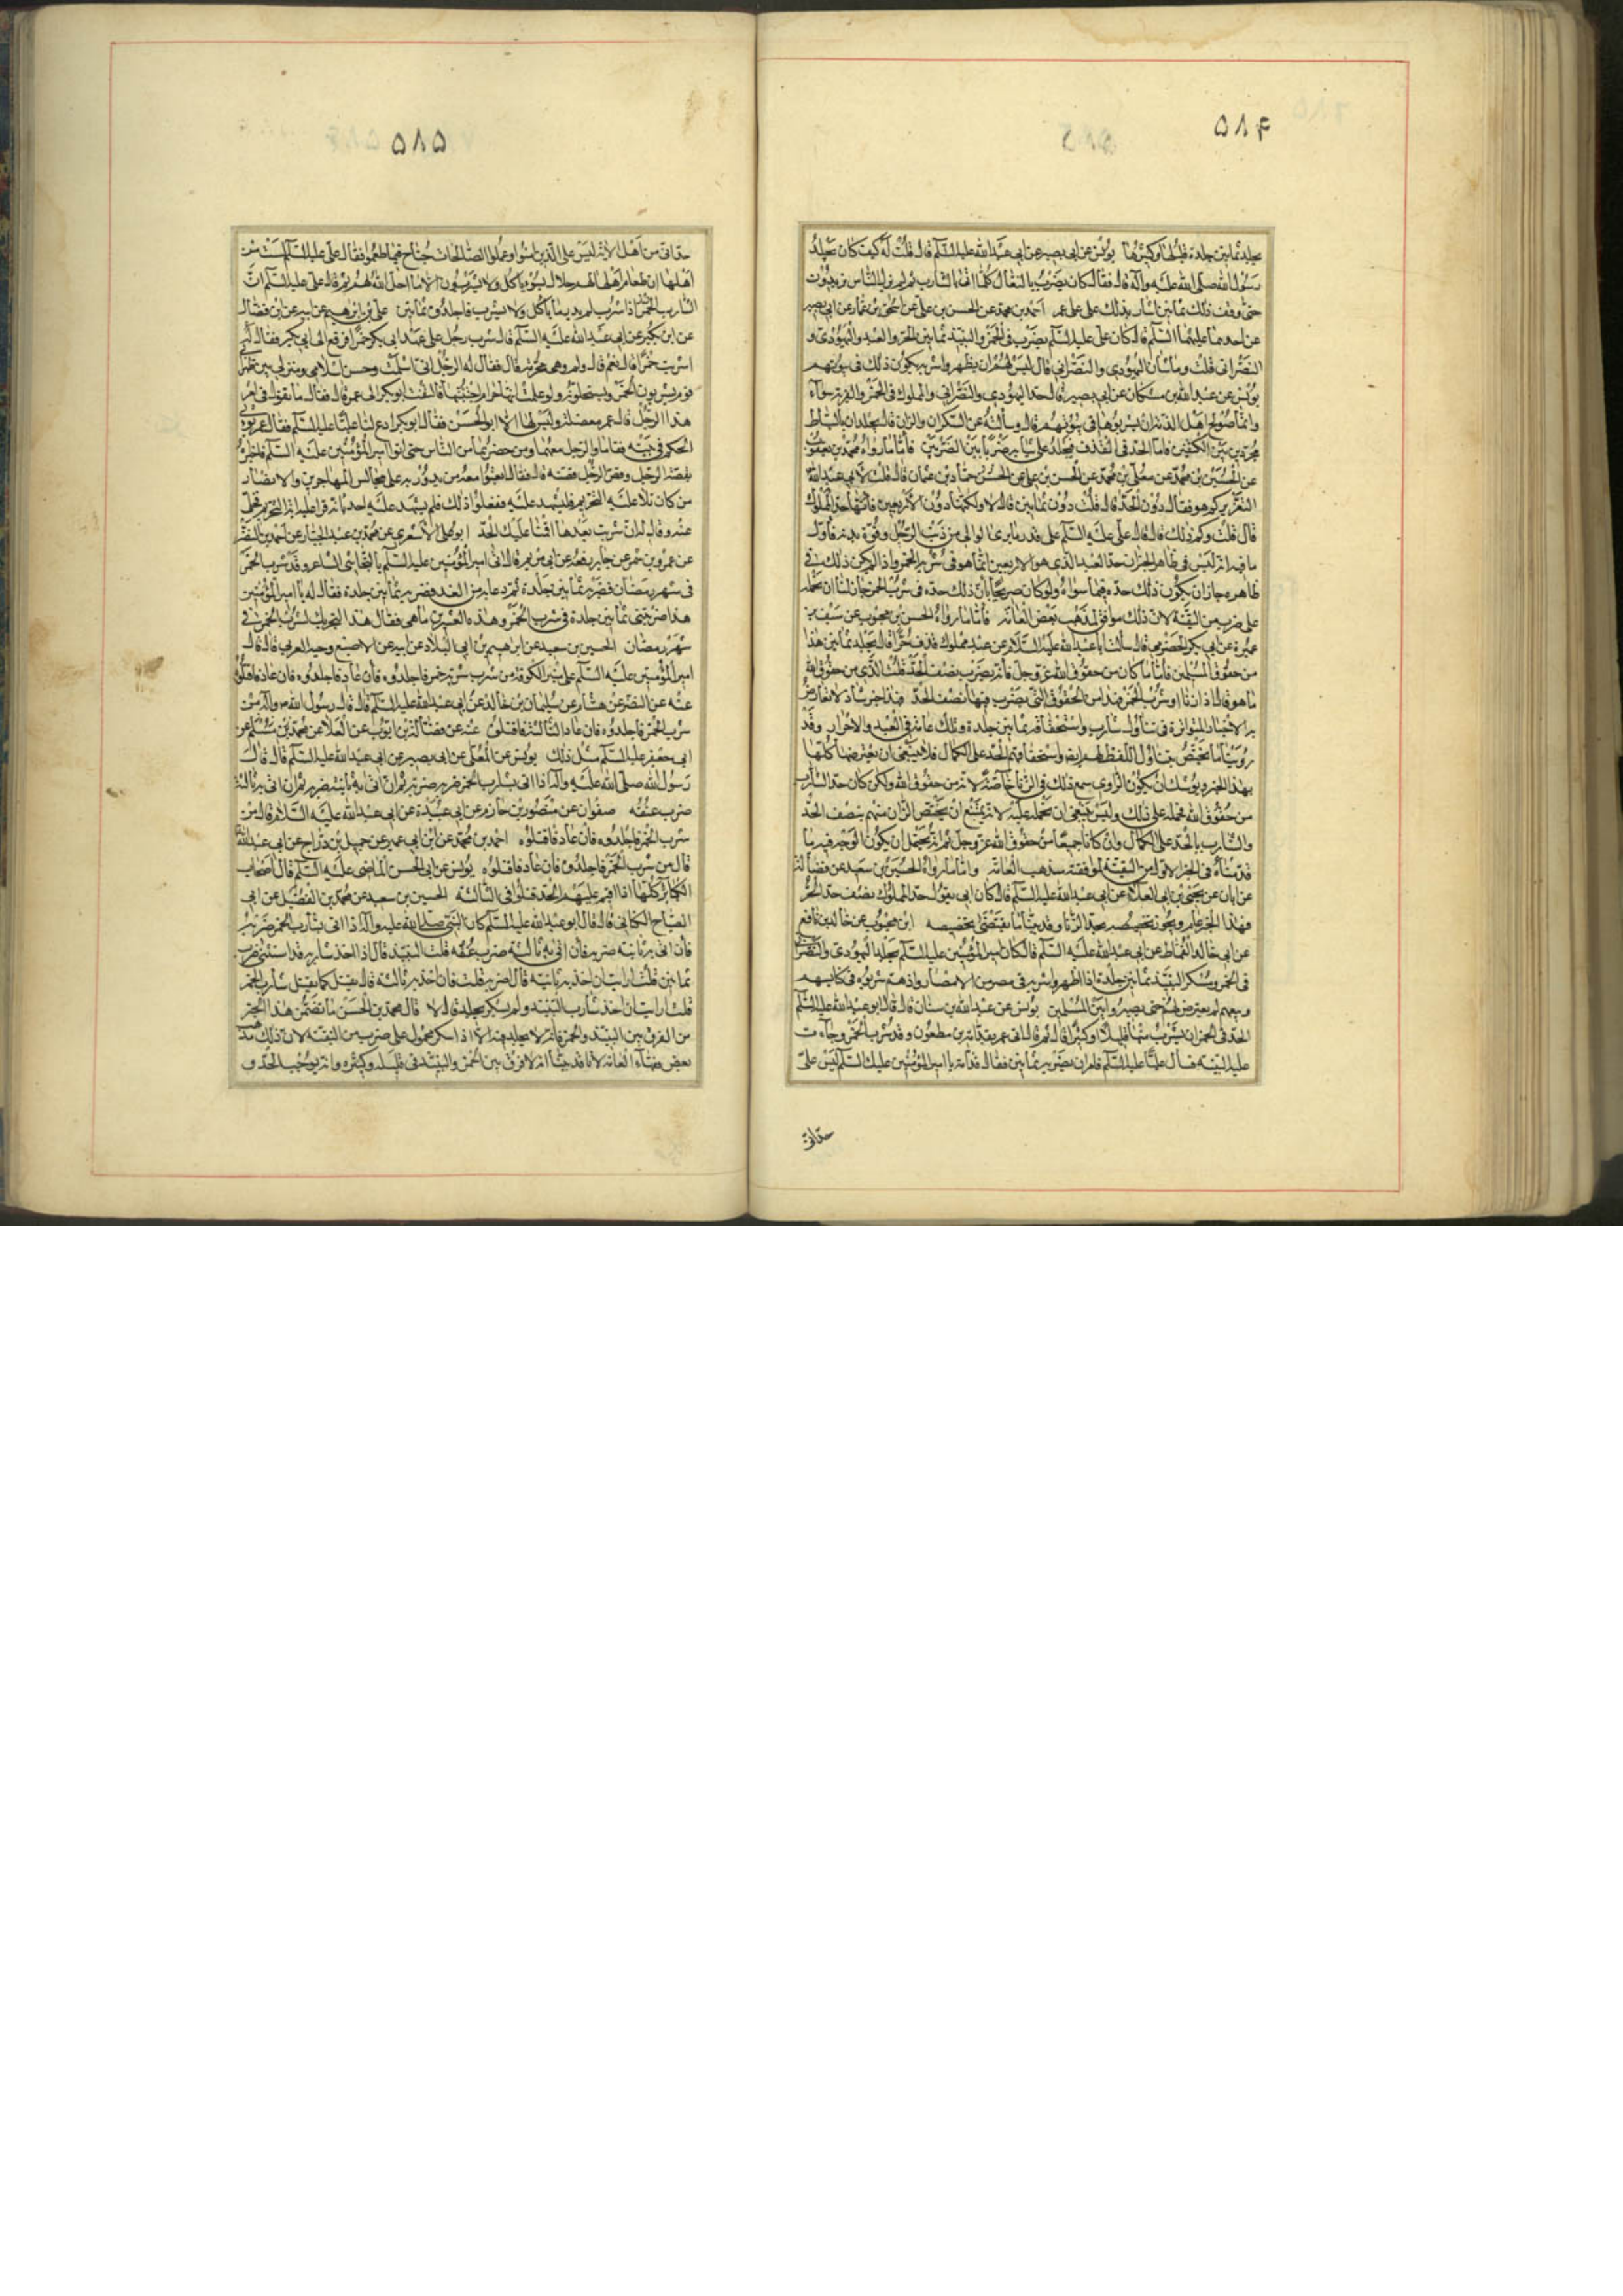 ۵۸۴
يجلد ثمانين جلدة قليلها وكثيرها يونس عن ابى بصير عن ابى عبد الله عليه السلم قال قلت له كيف كان يجلد
رسول الله صلى الله عليه وآله قال فقال كان يضرب بالنعال كلما اتى بالشارب ثم لم يزل الناس يزيدون
حتى وقف ذلك على ثمانين اشار بذلك على على عمر احمد بن محمد عن الحسن بن على عن اسحق بن عمار عن ابى بصير
عن احدهما عليهما السلم قال كان على عليه السلم يضرب فى الخمر والنبيذ ثمانين الحر والعبد واليهودى و
النصرانى قلت وما شان اليهودى والنصرانى قال ليس لهم ان يظهروا شربه يكون ذلك فى بيوتهم
يونس عن عبد الله بن مسكان عن ابى بصير قال حد اليهودى والنصرانى والمملوك فى الخمر والفرية سواء
وانما صولح اهل الذمة ان يشربوها فى بيوتهم قال وسألته عن السكران والزانى قال يجلدان بالسياط
مجردين بين الكتفين فاما الحد فى القذف فيجلد على ثيابه ضربا بين الضربين فاما ما رواه محمد بن يعقوب
عن الحسين بن محمد عن معلى بن محمد عن الحسن بن على عن حماد بن عثمان قال قلت لابى عبد الله
التعزير كم هو فقال دون الحد قال قلت دون ثمانين قال لا ولكنها دون الاربعين فانها حد المملوك
قال قلت وكم ذلك قال قال على عليه السلم على قدر ما يرى الوالى من ذنب الرجل وقوة بدنه فاول
ما فيه انه ليس فى ظاهر الخبر ان حد العبد الذى هو الاربعين انما هو فى شرب الخمر واذا لم يكن ذلك فى
ظاهره جاز ان يكون ذلك حده فيما سواه ولو كان صريحا بان ذلك حده فى شرب الخمر جاز لنا ان نحمله
على ضرب من التقية لان ذلك موافق لمذهب بعض العامة فاما ما رواه الحسن بن محبوب عن سيف بن
عميرة عن ابى بكر الحضرمى قال سألت ابا عبد الله عليه السلام عن عبد مملوك قذف حرا قال يجلد ثمانين هذا
من حقوق المسلمين فاما ما كان من حقوق الله عز وجل فانه يضرب نصف الحد قلت الذى من حقوق الله
ما هو قال اذا زنا او شرب الخمر فهذا من الحقوق التى يضرب فيها نصف الحد فهذا خبر شاذ لا تعارض
به الاخبار المتواترة فى تناول شارب واستحقاقه ثمانين جلدة وتلك عامة فى العبد والاحرار وقد
روينا ما يختص بتناول اللفظ لهم ايضا واستحقاقهم الحد على الكمال فلا ينبغى ان نعترضها كلها
بهذا الخبر ويوشك ان يكون الراوى سمع ذلك فى الزنا خاصة لانه من حقوق الله ولكن كان حد الشارب
من حقوق الله فحمله على ذلك وليس ينبغى ان نحمله عليه لانه لا يمتنع ان يختص الزانى منهم بنصف الحد
والشارب بالحد على الكمال وان كانا جميعا من حقوق الله عز وجل ثم انه يحتمل ان يكون الوجه فيه ما
قدمناه فى الخبر الاول من التقية لموافقته مذهب العامة واما ما رواه الحسين بن سعيد عن فضالة
عن ابان عن يحيى بن ابى العلاء عن ابى عبد الله عليه السلم قال كان ابى يقول حد المملوك نصف حد الحر
فهذا الخبر عام ويجوز تخصيصه بحد الزنا وقد بينا ما يقتضى تخصيصه ابن محبوب عن خالد بن نافع
عن ابى خالد القماط عن ابى عبد الله عليه السلم قال كان امير المؤمنين عليه السلم يجلد اليهودى والنصرانى
فى الخمر ومسكر النبيذ ثمانين جلدة اذا اظهروا شربه فى مصر من الامصار واذ هم شربوه فى كنايسهم
وبيعهم لم يعترض لهم حتى يصيروا بين المسلمين يونس عن عبد الله بن سنان قال قال ابو عبد الله عليه السلم
الحد فى الخمر ان يشرب منها قليلا او كثيرا قال ثم قال اتى عمر بقدامة بن مظعون وقد شرب الخمر وجاءت
عليه البينة فسأل عليا عليه السلم فامره ان يضربه ثمانين فقال قدامة يا امير المؤمنين عليك السلم ليس على
حدانى
۵۸۵
حد انى من اهل الاية ليس على الذين امنوا وعملوا الصالحات جناح فيما طعموا فقال على عليه السلم لست من
اهلها ان طعام اهلها لهم حلال ليس يأكلون ولا يشربون الا ما احل الله لهم ثم قال على عليه السلم ان
الشارب للخمر اذا شرب لم يدر ما يأكل ولا يشرب فاجلدوه ثمانين على بن ابرهيم عن ابيه عن ابن فضال
عن ابن بكير عن ابى عبد الله عليه السلم قال شرب رجل على عهد ابى بكر خمرا فرفع الى ابى بكر فقال له
اشربت خمرا قال نعم قال ولم وهى محرمة قال فقال له الرجل انى اسلمت وحسن اسلامى ومنزلى بين ظهرانى
قوم يشربون الخمر ويستحلونه ولو علمت انها حرام اجتنبتها فالتفت ابو بكر الى عمر قال فقال ما تقول فى امر
هذا الرجل قال عمر معضلة وليس لها الا ابو الحسن فقال ابو بكر ادع لنا عليا عليه السلم فقال عمر يؤتى
الحكم فى بيته فقاما والرجل معهما ومن حضرهما من الناس حتى اتوا امير المؤمنين عليه السلم فاخبراه
بقصة الرجل وقص الرجل قصته قال فقال ابعثوا معه من يدور به على مجالس المهاجرين والانصار
من كان تلا عليه التحريم فليشهد عليه ففعلوا ذلك فلم يشهد عليه احد بانه قرا عليه اية التحريم فخلى
عنه وقال له ان شربت بعدها اقمنا عليك الحد ابو على الاشعرى عن محمد بن عبد الجبار عن احمد بن النضر
عن عمرو بن شمر عن جابر رفعه عن ابى مريم قال اتى امير المؤمنين عليه السلم بالنجاشى الشاعر وقد شرب الخمر
فى شهر رمضان فضربه ثمانين جلدة ثم دعا به من الغد فضربه ثمانين جلدة فقال له يا امير المؤمنين
هذا ضربتنى ثمانين جلدة فى شرب الخمر وهذه العشرين ما هى فقال هذا لتجريك لشرب الخمر فى
شهر رمضان الحسين بن سعيد عن ابرهيم بن ابى البلاد عن ابيه عن الاصبغ وحبة العرنى قال قال
امير المؤمنين عليه السلم على منبر الكوفة من شرب شربة خمر فاجلدوه فان عاد فاجلدوه فان عاد فاقتلوه
عنه عن النضر عن هشام عن سليمان بن خالد عن ابى عبد الله عليه السلم قال قال رسول الله ص واله من
شرب الخمر فاجلدوه فان عاد الثالثة فاقتلوه عنه عن فضالة بن ايوب عن العلا عن محمد بن مسلم عن
ابى جعفر عليه السلم مثل ذلك يونس عن المعلى عن ابى بصير عن ابى عبد الله عليه السلم قال قال
رسول الله صلى الله عليه واله اذا اتى بشارب الخمر ضربه ثم ان اتى به ثانية ضربه ثم ان اتى به ثالثة
ضرب عنقه صفوان عن منصور بن حازم عن ابى عبيدة عن ابى عبد الله عليه السلام قال من
شرب الخمر فاجلدوه فان عاد فاقتلوه احمد بن محمد عن ابن ابى عمير عن جميل بن دراج عن ابى عبد الله
قال من شرب الخمر فاجلدوه فان عاد فاقتلوه يونس عن ابى الحسن الماضى عليه السلم قال اصحاب
الكبائر كلها اذا اقيم عليهم الحد قتلوا فى الثالثة الحسين بن سعيد عن محمد بن الفضيل عن ابى
الصباح الكنانى قال قال ابو عبد الله عليه السلم كان النبى صلى الله عليه واله اذا اتى بشارب الخمر ضربه
فان اتى به ثانية ضربه فان اتى به ثالثة ضرب عنقه قلت النبيذ قال اذا اخذ شاربه قد انتشى ضرب
ثمانين قلت ارايت ان اخذ به ثانية قال اضربه قلت فان اخذ به ثالثة قال يقتل كما يقتل شارب الخمر
قلت ارايت ان اخذ شارب النبيذ ولم يسكر يجلد قال لا قال محمد بن الحسن ما تضمن هذا الخبر
من الفرق بين النبيذ والخمر فانه لا يجلد فيه الا اذا سكر محمول على ضرب من التقية لان ذلك مذهب
بعض فقهاء العامة لانا قد بينا انه لا فرق بين الخمر والنبيذ فى قليله وكثيره وانه يوجب الحد و